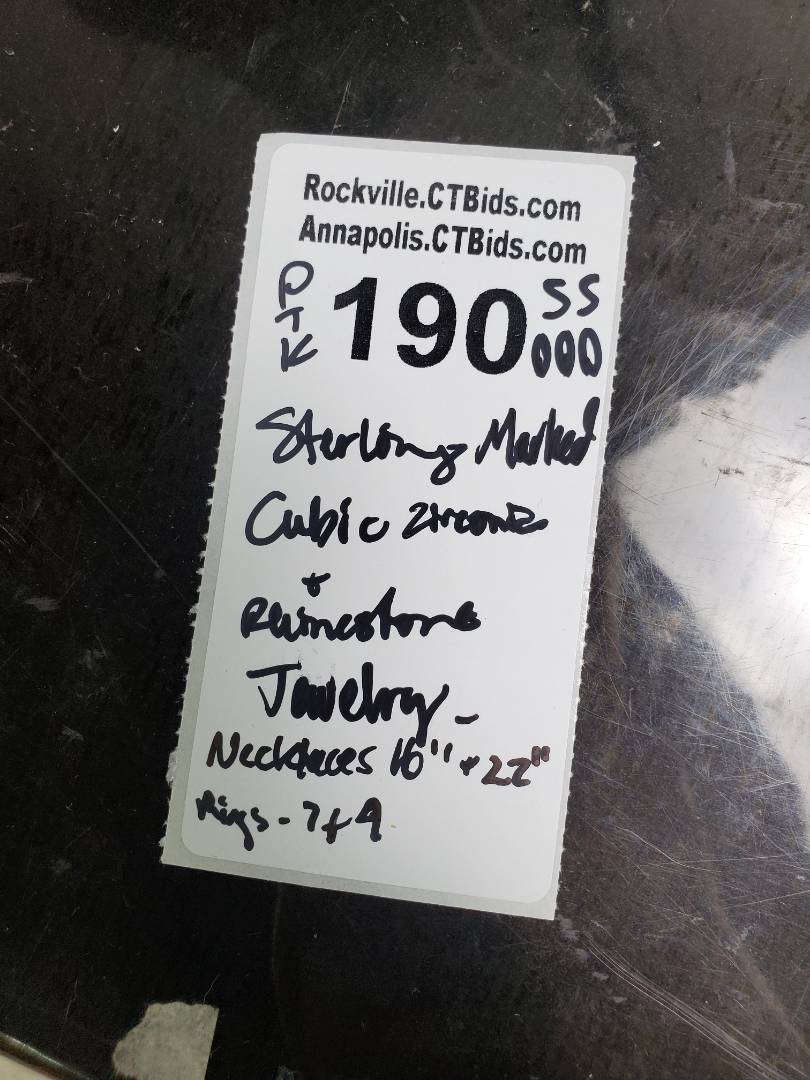 Rockville.CTBids.com
Annapolis.CTBids.com
PTK 190 SS 000
Sterling Marked
Cubic Zirconia
+
Rhinestone
Jewelry -
Necklaces 16" + 22"
Rings - 7 + 9